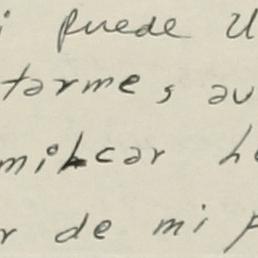 i puede U
tarmes, au
milcar h
r de mi p